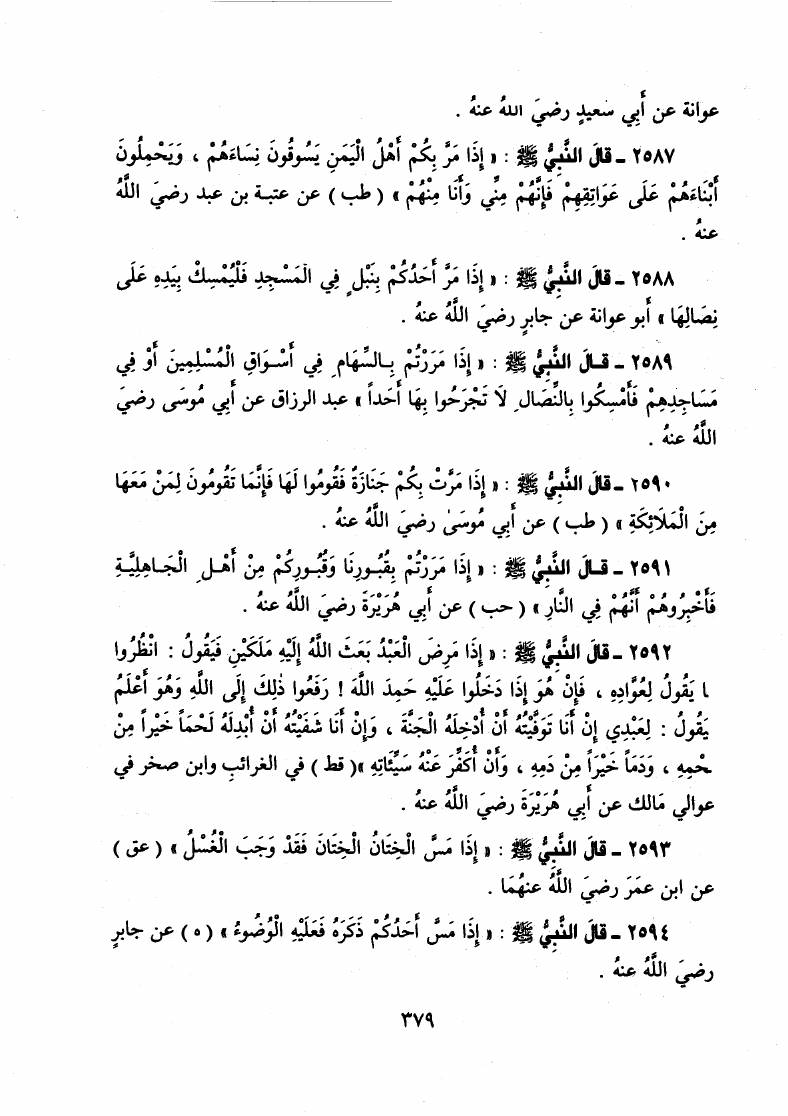 عوانة عن أَبِي سَعيدٍ رضيَ اللهُ عنهُ .
٢٥٨٧ ـ قالَ النَّبِيُّ ﷺ : « إِذَا مَرَّ بِكُمْ أَهْلُ الْيَمَنِ يَسُوقُونَ نِسَاءَهُمْ ، وَيَحْمِلُونَ
أَبْنَاءَهُمْ عَلَى عَوَاتِقِهِمْ فَإِنَّهُمْ مِنِّي وَأَنَا مِنْهُمْ » ( طب ) عن عتبـة بن عبد رضيَ اللَّهُ
عنهُ .
٢٥٨٨ ـ قالَ النَّبِيُّ ﷺ : « إِذَا مَرَّ أَحَدُكُمْ بِنَبْلٍ فِي الْمَسْجِدِ فَلْيُمْسِكْ بِيَدِهِ عَلَى
نِصَالِهَا » أبو عوانة عن جابرٍ رضيَ اللَّهُ عنهُ .
٢٥٨٩ ـ قـالَ النَّبِيُّ ﷺ : « إِذَا مَرَرْتُمْ بِـالسِّهَامِ فِي أَسْـوَاقِ الْمُسْلِمِينَ أَوْ فِي
مَسَاجِدِهِمْ فَأَمْسِكُوا بِالنِّصَالِ لَا تَجْرَحُوا بِهَا أَحَداً » عبد الرزاق عن أَبِي مُوسَى رضيَ
اللَّهُ عنهُ .
٢٥٩٠ ـ قالَ النَّبِيُّ ﷺ : « إِذَا مَرَّتْ بِكُمْ جَنَازَةٌ فَقُومُوا لَهَا فَإِنَّمَا تَقُومُونَ لِمَنْ مَعَهَا
مِنَ الْمَلَائِكَةِ » ( طب ) عن أَبِي مُوسَىٰ رضيَ اللَّهُ عنهُ .
٢٥٩١ ـ قـالَ النَّبِيُّ ﷺ : « إِذَا مَرَرْتُمْ بِقُبُـورِنَا وَقُبُـورِكُمْ مِنْ أَهْـلِ الْجَـاهِلِيَّـةِ
فَأَخْبِرُوهُمْ أَنَّهُمْ فِي النَّارِ » ( حب ) عن أَبِي هُرَيْرَةَ رضيَ اللَّهُ عنهُ .
٢٥٩٢ ـ قالَ النَّبِيُّ ﷺ : « إِذَا مَرِضَ الْعَبْدُ بَعَثَ اللَّهُ إِلَيْهِ مَلَكَيْنِ فَيَقُولُ : انْظُرُوا
ا يَقُولُ لِعُوَّادِهِ ، فَإِنْ هُوَ إِذَا دَخَلُوا عَلَيْهِ حَمِدَ اللَّهَ ! رَفَعُوا ذٰلِكَ إِلَى اللَّهِ وَهُوَ أَعْلَمُ
يَقُولُ : لِعَبْدِي إِنْ أَنَا تَوَفَّيْتُهُ أَنْ أُدْخِلَهُ الْجَنَّةَ ، وَإِنْ أَنَا شَفَيْتُهُ أَنْ أُبْدِلَهُ لَحْمَاً خَيْراً مِنْ
حْمِهِ ، وَدَمَاً خَيْراً مِنْ دَمِهِ ، وَأَنْ أُكَفِّرَ عَنْهُ سَيِّئَاتِهِ »( قط ) في الغرائبِ وابن صخر في
عوالي مَالك عن أَبي هُرَيْرَةَ رضيَ اللَّهُ عنهُ .
٢٥٩٣ ـ قالَ النَّبِيُّ ﷺ : « إِذَا مَسَّ الْخِتَانُ الْخِتَانَ فَقَدْ وَجَبَ الْغُسْلُ » ( عق )
عن ابن عمَرَ رضيَ اللَّهُ عنهُمَا .
٢٥٩٤ ـ قالَ النَّبِيُّ ﷺ : « إِذَا مَسَّ أَحَدُكُمْ ذَكَرَهُ فَعَلَيْهِ الْوُضُوءُ » ( ه ) عن جابرٍ
رضيَ اللَّهُ عنهُ .
٣٧٩